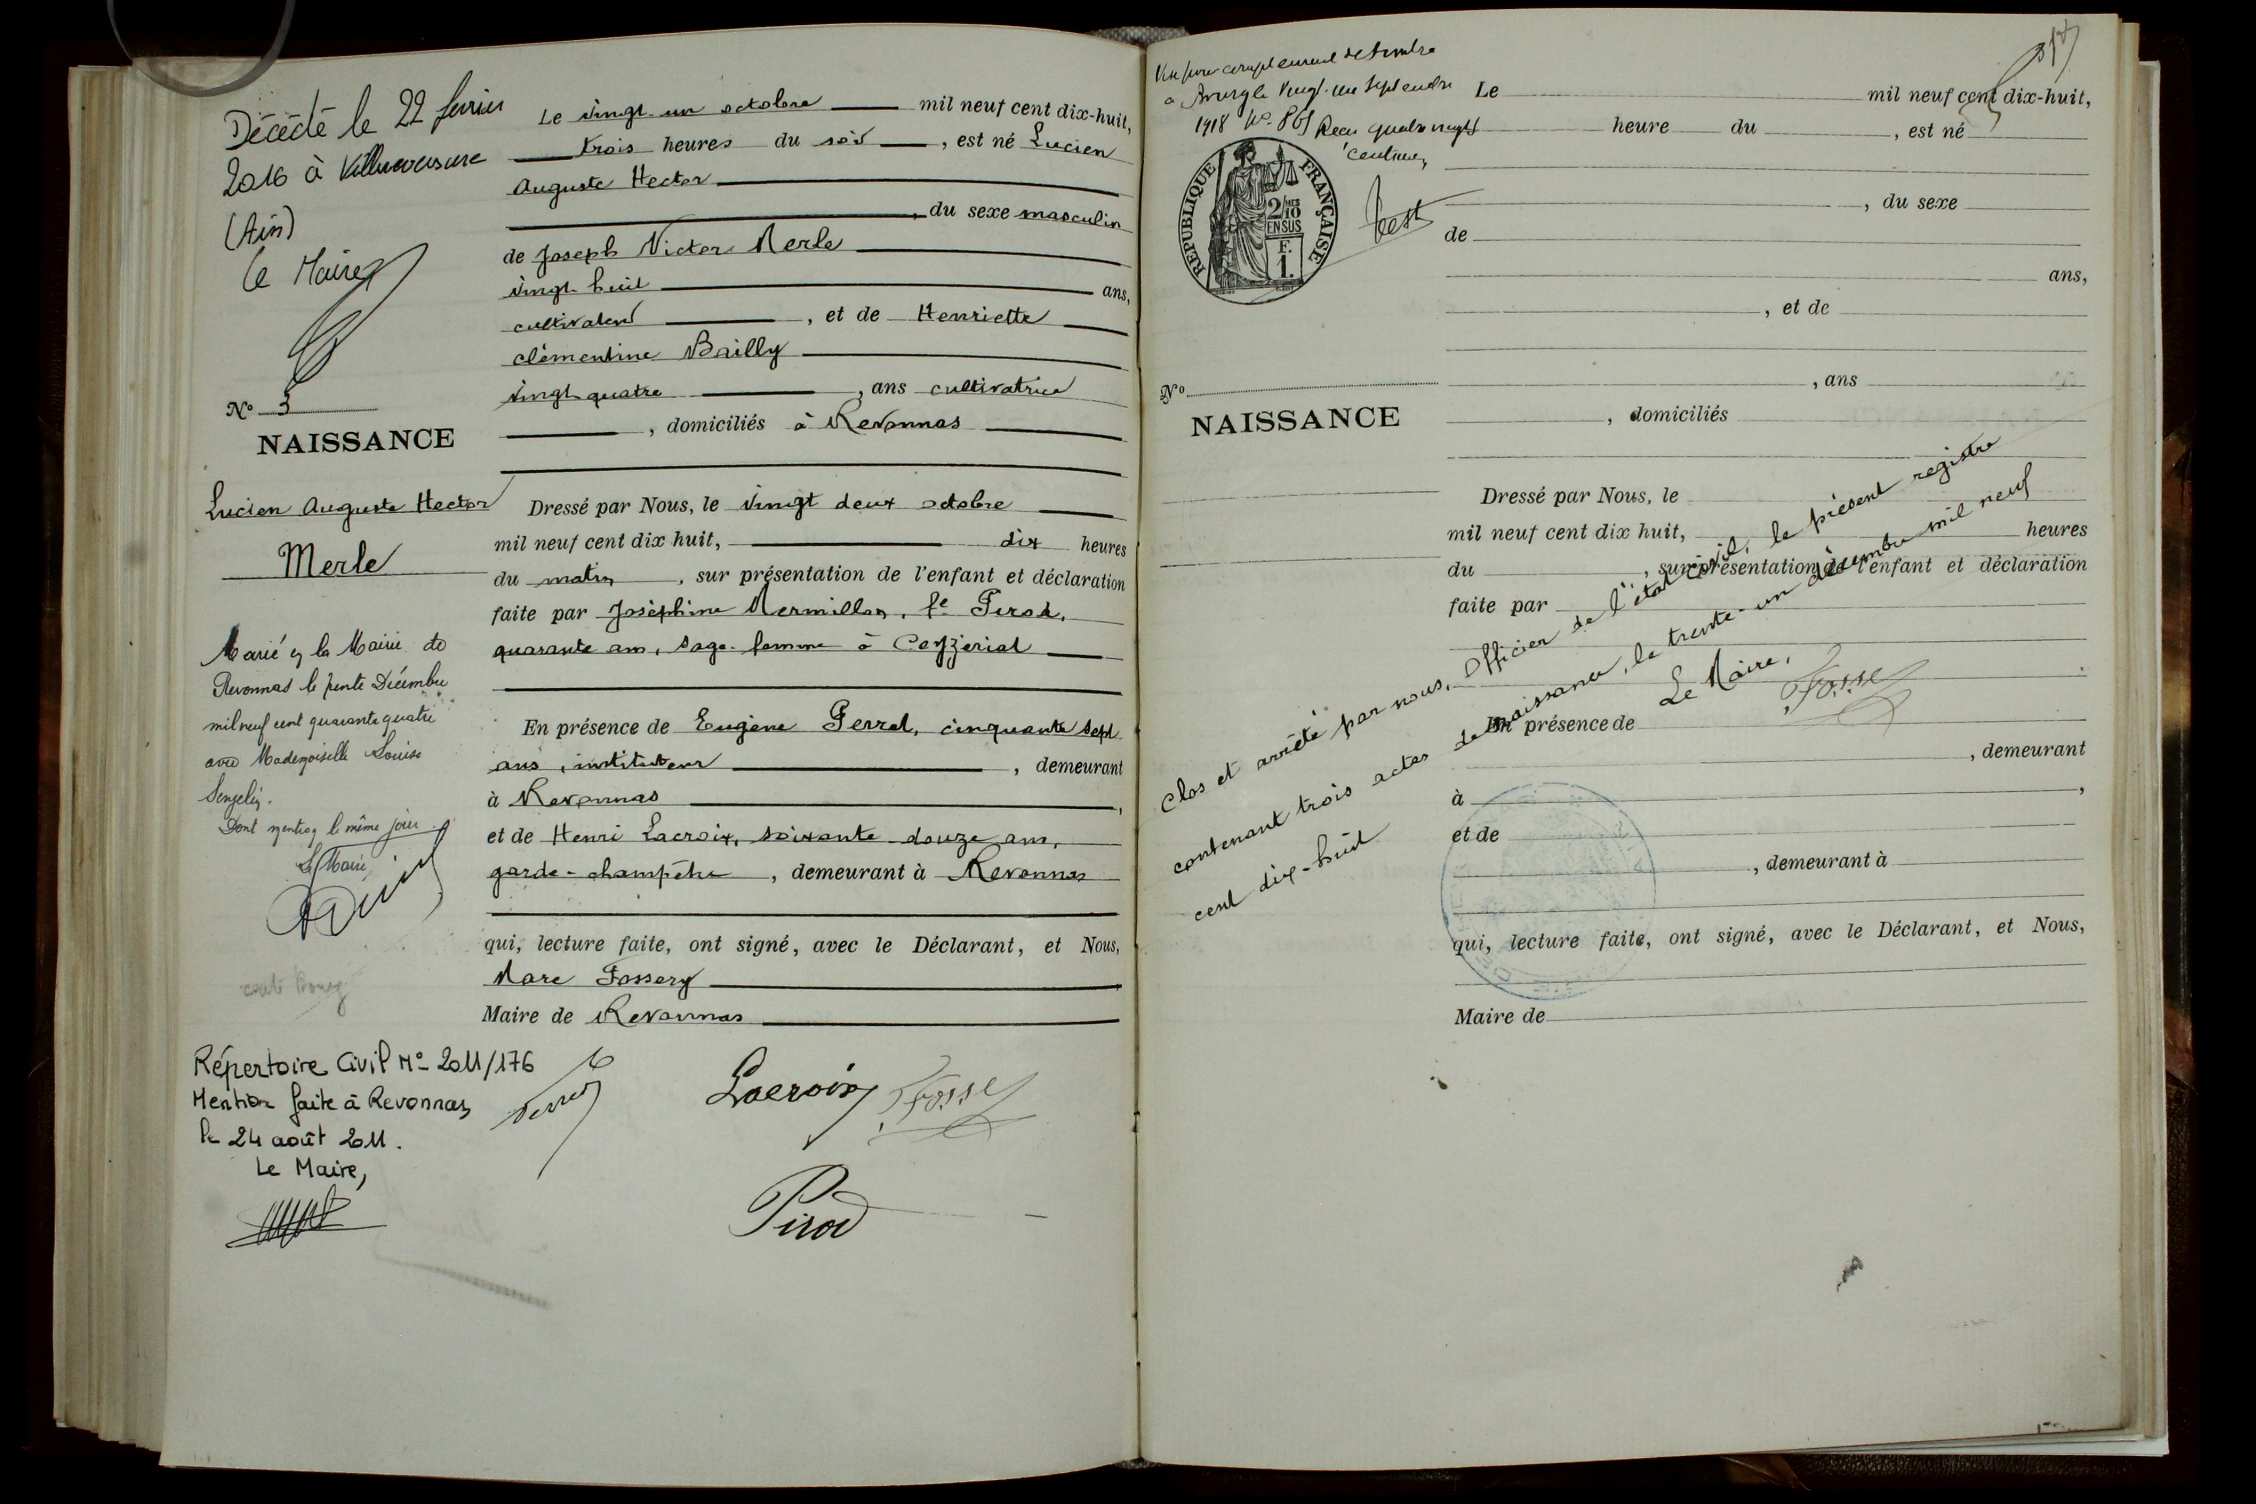 Décédé le 22 février
2016 à Villereversure
(Ain)
Le Maire
N° 3
NAISSANCE
Lucien Auguste Hector
Merle
Marié en la Mairie de
Revonnas le trente Décembre
mil neuf cent quarante quatre
avec Mademoiselle Louise
Dont mention le même jour
Le Maire
Répertoire Civil N° 2011/176
Mention faite à Revonnas
le 24 août 2011.
Le Maire,
Le vingt un octobre mil neuf cent dix-huit,
trois heures du soir, est né Lucien
Auguste Hector
, du sexe masculin
de Joseph Victor Merle
vingt huit ans,
cultivateur, et de Henriette
clémentine Bailly
vingt quatre, ans cultivatrice
, domiciliés à Revonnas
Dressé par Nous, le vingt deux octobre
mil neuf cent dix huit, dix heures
du matin, sur présentation de l'enfant et déclaration
faite par Joséphine Mermillon, fe Pirod,
quarante ans, sage-femme à Ceyzériat
En présence de Eugène Perret, cinquante sept
ans, instituteur, demeurant
à Revonnas,
et de Henri Lacroix, soixante douze ans,
garde-champêtre, demeurant à Revonnas
qui, lecture faite, ont signé, avec le Déclarant, et Nous,
Marc Fossery
Maire de Revonnas
Perret Lacroix
Pirod
Vu pour complément de timbre
à vingt un Septembre
1918 N° 861 Reçu quatre vingts
centimes
RÉPUBLIQUE FRANÇAISE
2/10
EN SUS
F.
1.
Le mil neuf cent dix-huit,
heure du , est né
, du sexe
de
ans,
, et de
N°
, ans
NAISSANCE
, domiciliés
Dressé par Nous, le
mil neuf cent dix huit, heures
du , sur présentation de l'enfant et déclaration
faite par
En présence de
, demeurant
à ,
et de
, demeurant à
qui, lecture faite, ont signé, avec le Déclarant, et Nous,
Maire de
Clos et arrêté par nous, Officier de l'état civil, le présent registre
contenant trois actes de naissance, le trente-un décembre mil neuf
cent dix-huit
Le Maire,